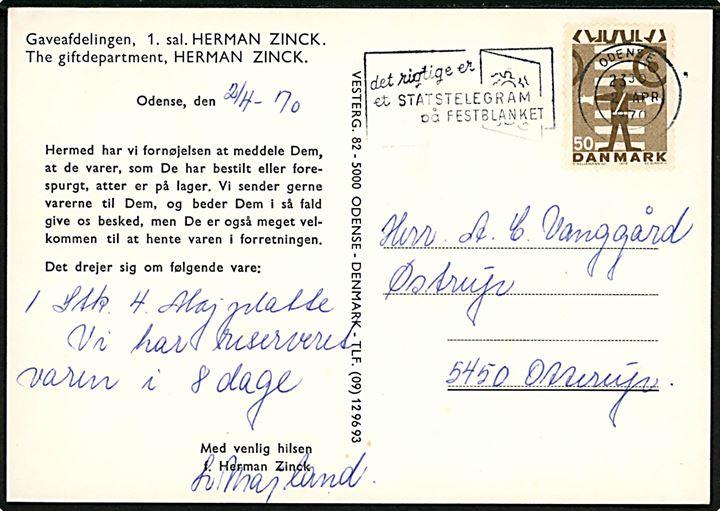 Gaveafdelingen, 1. sal. HERMAN ZINCK.
The giftdepartment, HERMAN ZINCK.
Odense, den 2/4-70
Hermed har vi fornøjelsen at meddele Dem,
at de varer, som De har bestilt eller fore-
spurgt, atter er på lager. Vi sender gerne
varerne til Dem, og beder Dem i så fald
give os besked, men De er også meget vel-
kommen til at hente varen i forretningen.
Det drejer sig om følgende vare:
1 Stk. 4. Maj platte
Vi har reserveret
varen i 8 dage
Med venlig hilsen
f. Herman Zinck
VESTERG. 82 - 5000 ODENSE - DENMARK - TLF. (09) 12 96 93
det rigtige er
et STATSTELEGRAM
på FESTBLANKET
ODENSE
APR.
1970
50
DANMARK
Herr. A. C. Vanggård
Østrup
5450 Otterup.